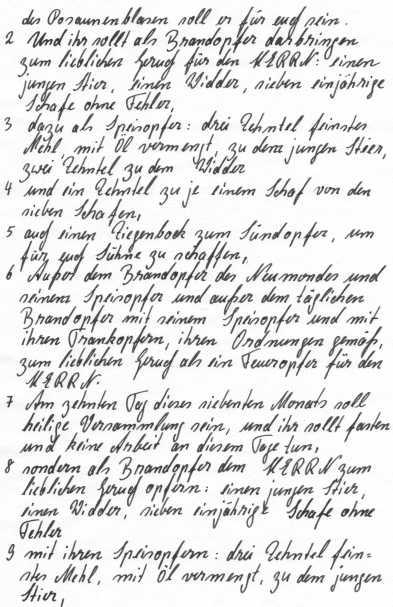 des Posaunenblasen soll er für euch sein.
2 Und ihr sollt als Brandopfer darbringen
zum lieblichen Geruch für den HERRN: einen
jungen Stier, einen Widder, sieben einjährige
Schafe ohne Fehler,
3 dazu als Speisopfer: drei Zehntel feinstes
Mehl mit Öl vermengt, zu dem jungen Stier,
zwei Zehntel zu dem Widder
4 und ein Zehntel zu je einem Schaf von den
sieben Schafen,
5 auch einen Ziegenbock zum Sündopfer, um
für euch Sühne zu schaffen,
6 Außer dem Brandopfer des Neumondes und
seinem Speisopfer und außer dem täglichen
Brandopfer mit seinem Speisopfer und mit
ihren Trankopfern, ihren Ordnungen gemäß,
zum lieblichen Geruch als ein Feueropfer für den
HERRN.
7 Am zehnten Tag dieses siebenten Monats soll
heilige Versammlung sein, und ihr sollt fasten
und keine Arbeit an diesem Tage tun,
8 sondern als Brandopfer dem HERRN zum
lieblichen Geruch opfern: einen jungen Stier,
einen Widder, sieben einjährige Schafe ohne
Fehler
9 mit ihren Speisopfern: drei Zehntel fein=
stes Mehl, mit Öl vermengt, zu dem jungen
Stier,